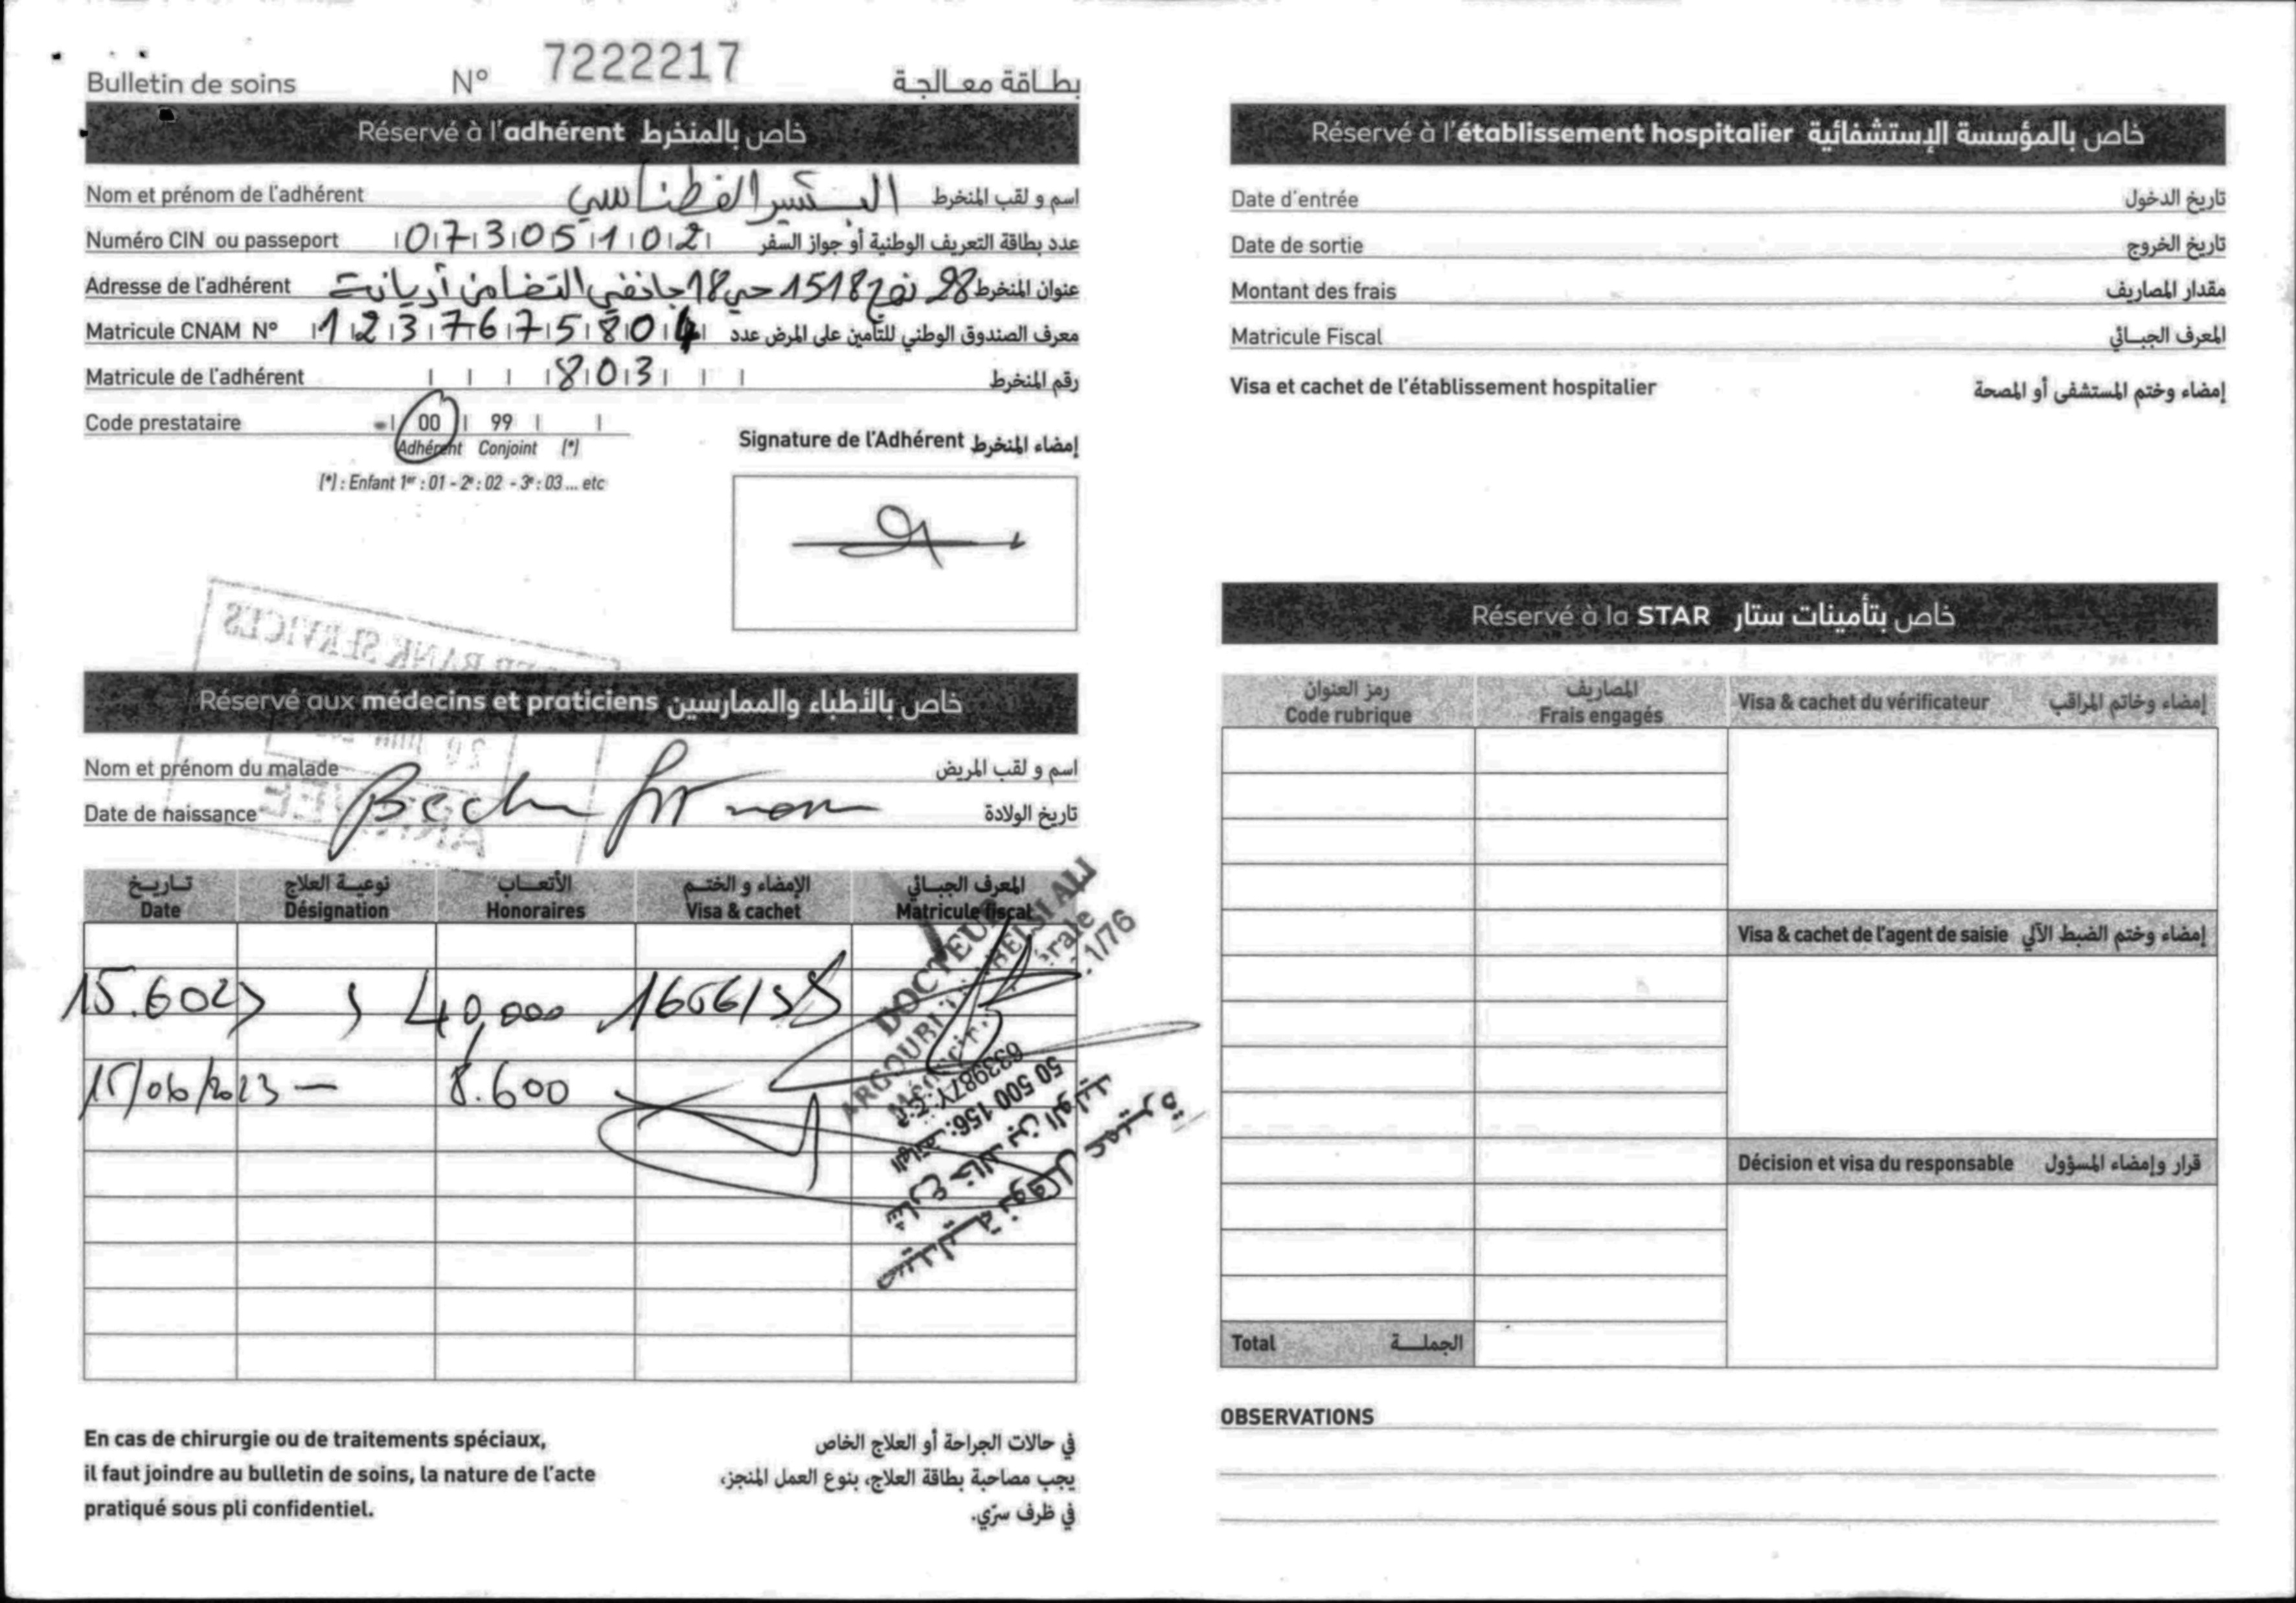 Bulletin de soins N° 7222217 بطاقة معالجة
Réservé à l'adhérent خاص بالمنخرط
Nom et prénom de l'adhérent البشير الغطناسي اسم و لقب المنخرط
Numéro CIN ou passeport 07305102 عدد بطاقة التعريف الوطنية أو جواز السفر
Adresse de l'adhérent 28 نهج 1518 حي 18 جانفي التضامن أريانة عنوان المنخرط
Matricule CNAM N° 123767580 معرف الصندوق الوطني للتأمين على المرض عدد
Matricule de l'adhérent 803 رقم المنخرط
Code prestataire 00 99
Adhérent Conjoint (*)
(*) : Enfant 1er : 01 - 2e : 02 - 3e : 03 ... etc
Signature de l'Adhérent إمضاء المنخرط
BANK SERVICES
Réservé aux médecins et praticiens خاص بالأطباء والممارسين
Nom et prénom du malade اسم و لقب المريض
Date de naissance تاريخ الولادة
تاريخ نوعية العلاج الأتعاب الإمضاء و الختم المعرف الجبائي
Date Désignation Honoraires Visa & cachet Matricule fiscal
15.6023 40,000
15/06/2023 — 8.600
DOCTEUR
ALI
1/76
الهاتف: 156 500 50
شارع خالد بن الوليد
En cas de chirurgie ou de traitements spéciaux,
il faut joindre au bulletin de soins, la nature de l'acte
pratiqué sous pli confidentiel.
في حالات الجراحة أو العلاج الخاص
يجب مصاحبة بطاقة العلاج، بنوع العمل المنجز،
في ظرف سرّي.
Réservé à l'établissement hospitalier خاص بالمؤسسة الإستشفائية
Date d'entrée تاريخ الدخول
Date de sortie تاريخ الخروج
Montant des frais مقدار المصاريف
Matricule Fiscal المعرف الجبائي
Visa et cachet de l'établissement hospitalier إمضاء وختم المستشفى أو المصحة
Réservé à la STAR خاص بتأمينات ستار
رمز العنوان المصاريف
Code rubrique Frais engagés
Visa & cachet du vérificateur إمضاء وخاتم المراقب
Visa & cachet de l'agent de saisie إمضاء وختم الضبط الآلي
Décision et visa du responsable قرار وإمضاء المسؤول
Total الجملة
OBSERVATIONS